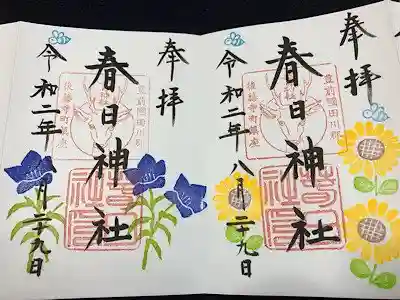 奉拝
豊前國田川郡
春日神社
後藤寺町鎮座
令和二年八月二十九日
奉拝
豊前國田川郡
春日神社
後藤寺町鎮座
令和二年八月二十九日